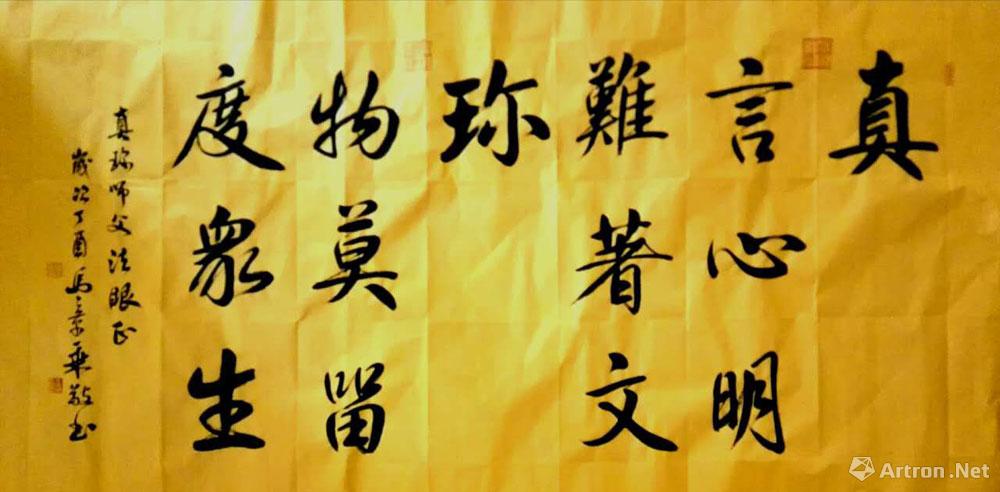 真
言心明
難著文
珎
物莫留
度眾生
真珎师父法眼正
歲次丁酉馬景乗敬书
Artron.Net